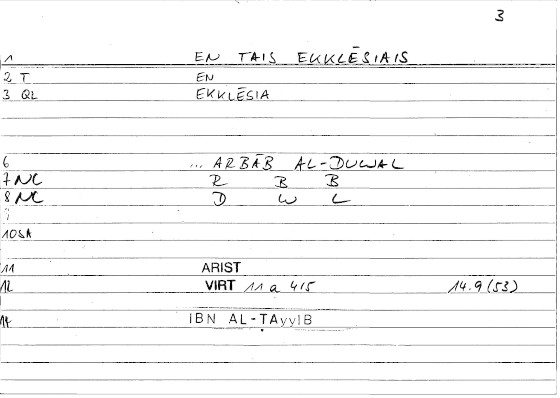 3
1 EN TAIS EKKLĒSIAIS
2 T EN
3 QL EKKLĒSIA
6 ... ARBĀB AL-DUWAL
7 NC R B B
8 NC D W L
9
10SA
11 ARIST
12 VIRT 11 a 4/5 14.9 (53)
14 IBN AL-ṬAyyIB